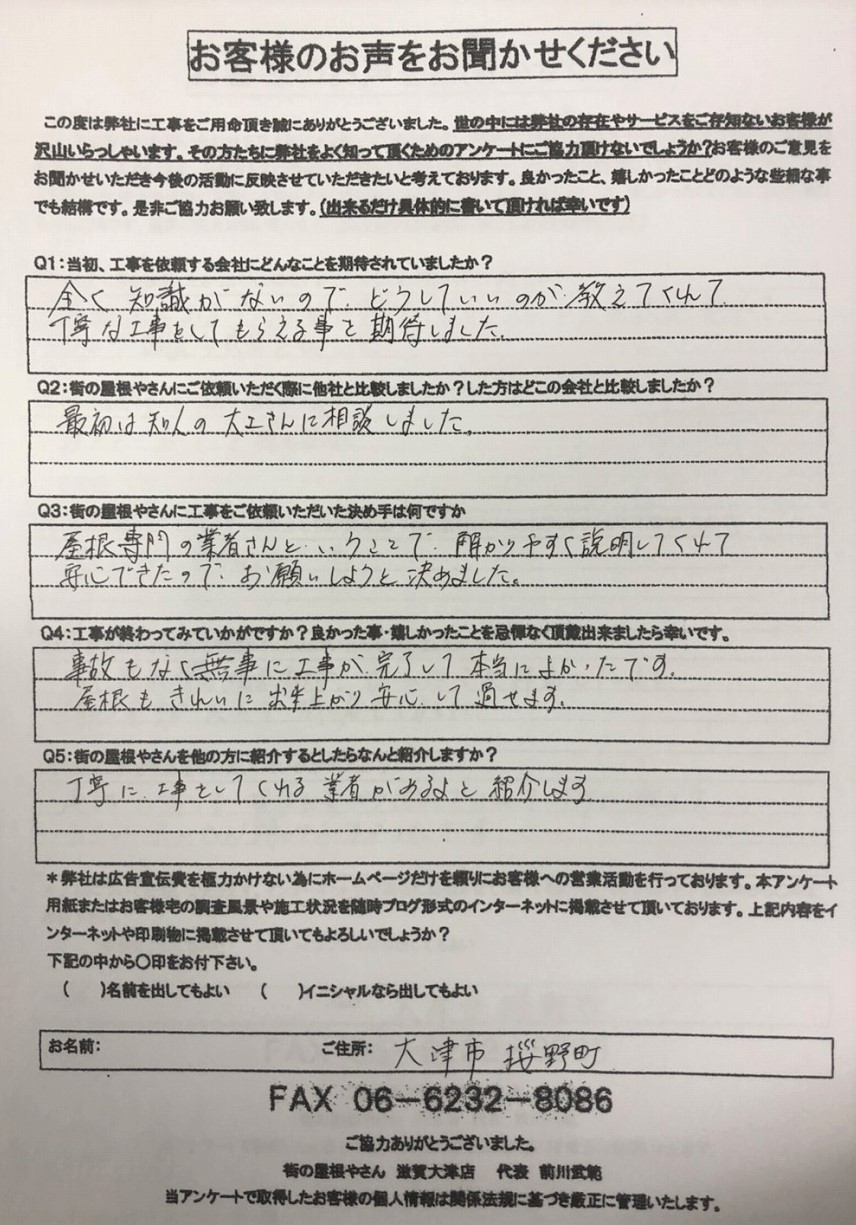 お客様のお声をお聞かせください
この度は弊社に工事をご用命頂き誠にありがとうございました。世の中には弊社の存在やサービスをご存知ないお客様が
沢山いらっしゃいます。その方たちに弊社をよく知って頂くためのアンケートにご協力頂けないでしょうか?お客様のご意見を
お聞かせいただき今後の活動に反映させていただきたいと考えております。良かったこと、嬉しかったことどのような些細な事
でも結構です。是非ご協力お願い致します。(出来るだけ具体的に書いて頂ければ幸いです)
Q1:当初、工事を依頼する会社にどんなことを期待されていましたか?
全く知識がないので、どうしていいのか教えてくれて
丁寧な工事をしてもらえる事を期待しました。
Q2:街の屋根やさんにご依頼いただく際に他社と比較しましたか?した方はどこの会社と比較しましたか?
最初は知人の大工さんに相談しました。
Q3:街の屋根やさんに工事をご依頼いただいた決め手は何ですか
屋根専門の業者さんということで、解かりやすく説明してくれて
安心できたので、お願いしようと決めました。
Q4:工事が終わってみていかがですか?良かった事・嬉しかったことを忌憚なく頂戴出来ましたら幸いです。
事故もなく無事に工事が完了して本当によかったです。
屋根もきれいに 上がり安心して過せます。
Q5:街の屋根やさんを他の方に紹介するとしたらなんと紹介しますか?
丁寧に工事をしてくれる業者があるよと紹介します
*弊社は広告宣伝費を極力かけない為にホームページだけを頼りにお客様への営業活動を行っております。本アンケート
用紙またはお客様宅の調査風景や施工状況を随時ブログ形式のインターネットに掲載させて頂いております。上記内容をイ
ンターネットや印刷物に掲載させて頂いてもよろしいでしょうか?
下記の中から〇印をお付下さい。
( )名前を出してもよい ( )イニシャルなら出してもよい
お名前: ご住所: 大津市桜野町
FAX 06-6232-8086
ご協力ありがとうございました。
街の屋根やさん 滋賀大津店 代表 前川武範
当アンケートで取得したお客様の個人情報は関係法規に基づき厳正に管理いたします。